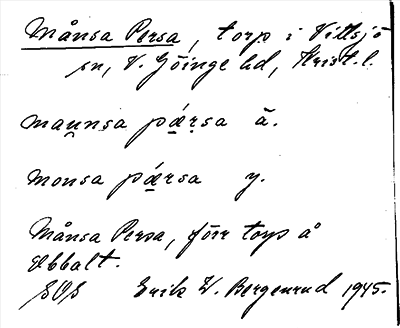 Månsa Persa, torp i Vittsjö
sn, V. Göinge hd, Krist. l.
mau̯nsa pǽrsa ä.
monsa pǽrsa y.
Månsa Persa, förr torp å
Ubbalt.
SOS Erik W. Bergenrud 1945.